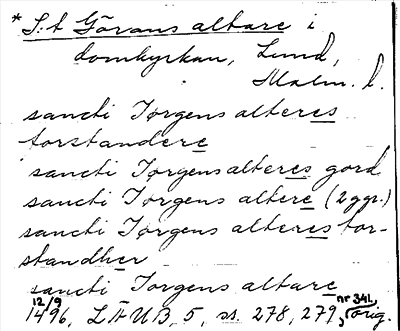 * S:t Görans altare i
domkyrkan, Lund,
Malm. l.
sancti Jørgens alteres
forstandere
sancti Jørgens alteres gord
sancti Jørgens altere (2 ggr.)
sancti Jørgens alteres for-
standher
sancti Jorgens altare
12/9 1496, LÄUB, 5, ss. 278, 279, nr 341, orig.